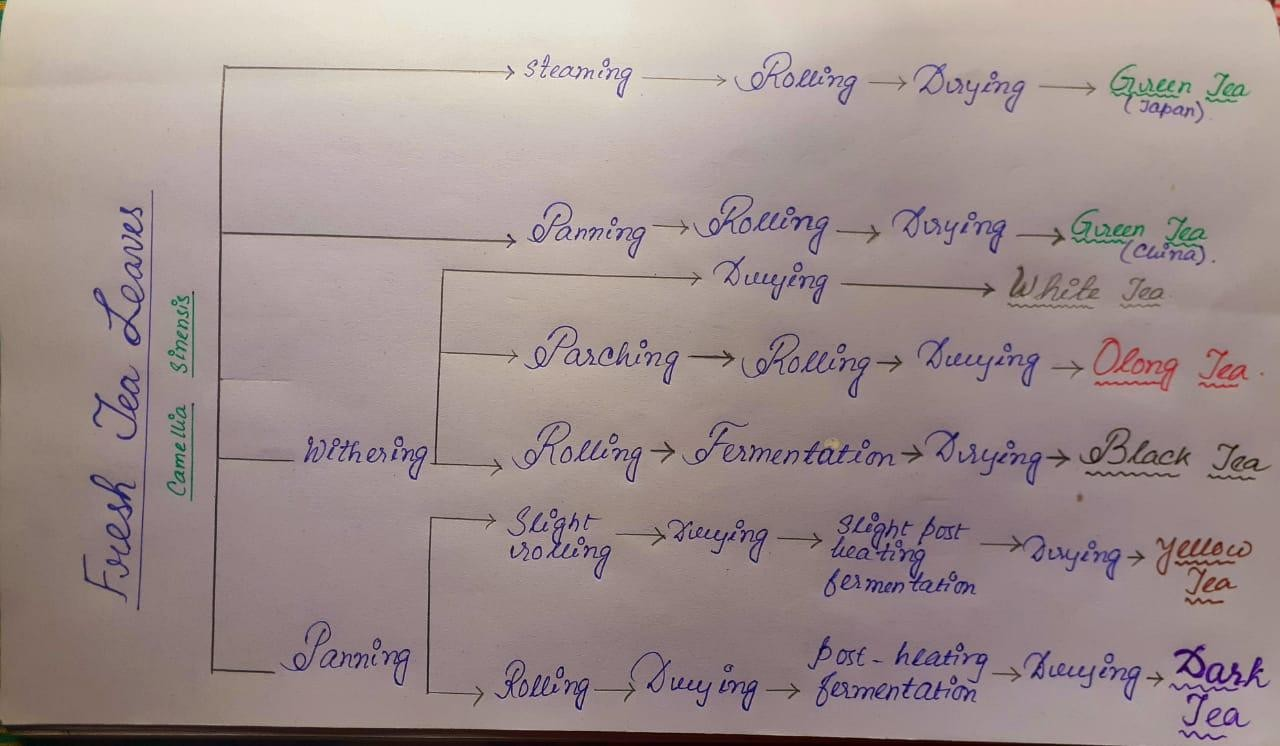 Fresh Tea Leaves
Camellia Sinensis
Steaming → Rolling → Drying → Green Tea
(Japan).
Panning → Rolling → Drying → Green Tea
(China).
Withering
Drying → White Tea
Parching → Rolling → Drying → Olong Tea.
Rolling → Fermentation → Drying → Black Tea
Panning
Slight
rolling → Drying → Slight post
heating
fermentation → Drying → Yellow
Tea
Rolling → Drying → post-heating
fermentation → Drying → Dark
Tea